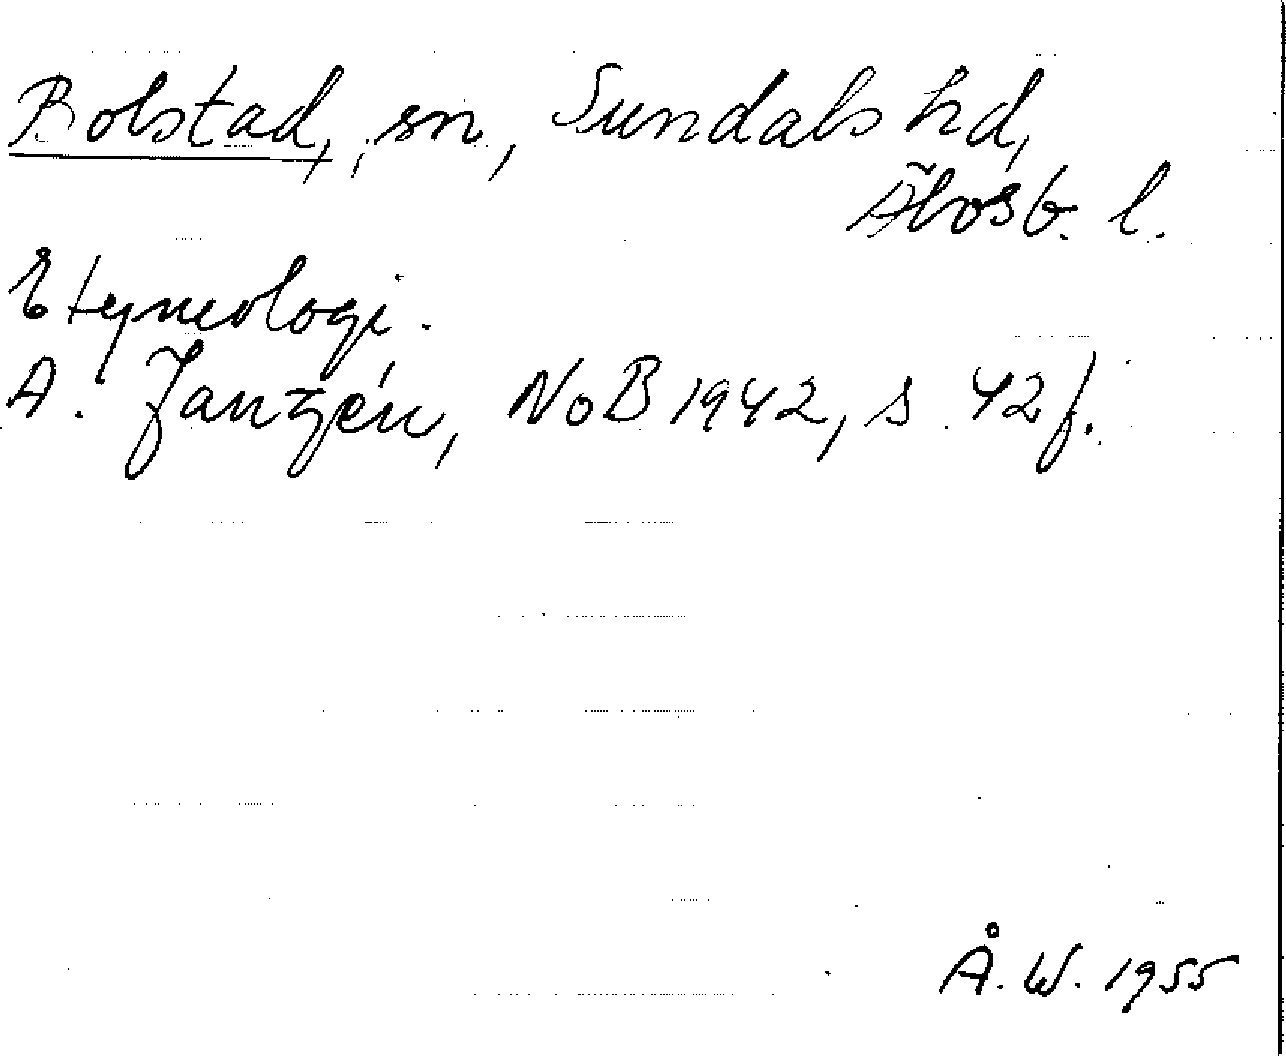 Bolstad, sn, Sundals hd,
Älvsb. l.
Etymologi.
A. Janzén, NoB 1942, s. 42 f.
Å. W. 1955